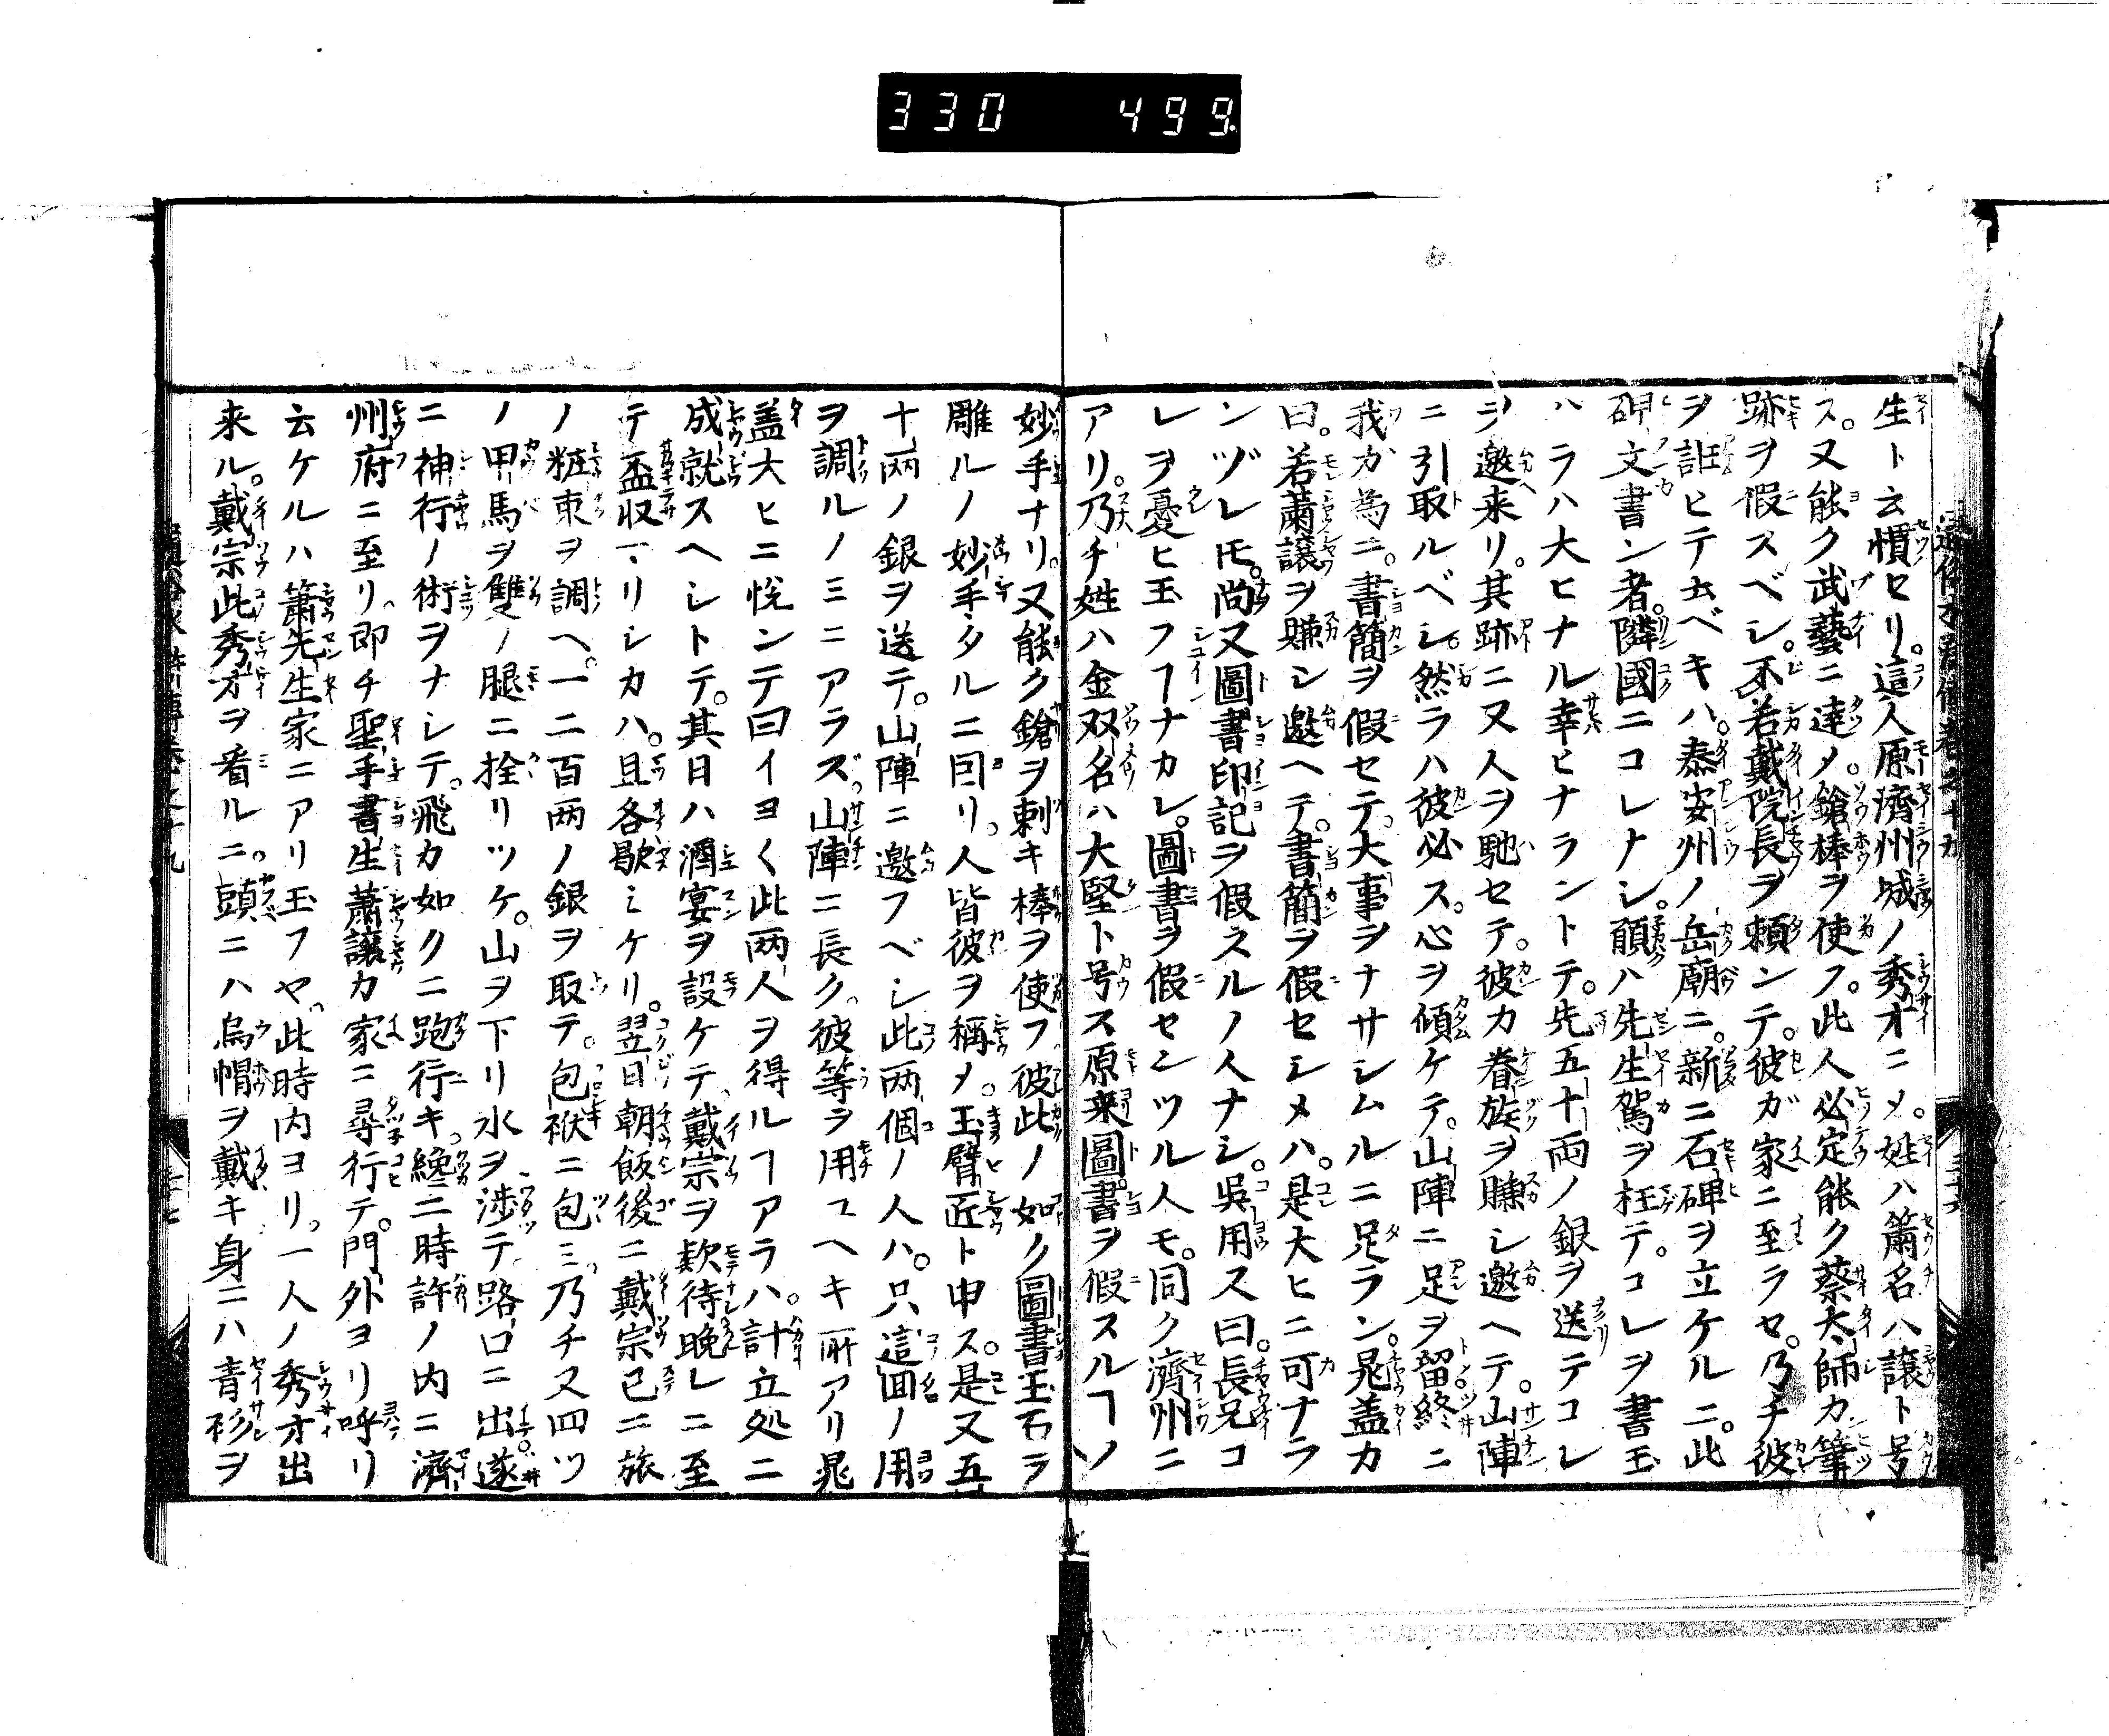 330 499.
通俗水滸傳卷之十九
生ト云慣セリ。這人原濟州城ノ秀才ニメ。姓ハ簫名ハ譲ト号
ス。又能ク武藝ニ達メ。鎗棒ヲ使フ。此人必定能ク蔡太師カ筆
跡ヲ假スベシ。不若戴院長ヲ頼ンテ。彼ガ家ニ至ラセ。乃チ彼
ヲ誑ヒテ云ベキハ。泰安州ノ岳廟ニ。新ニ石碑ヲ立ケルニ。此
碑文書ン者。隣國ニコレナシ。願ハ先生駕ヲ枉テ。コレヲ書玉
ハラハ大ヒナル幸ヒナラントテ。先五十両ノ銀ヲ送テコレ
ヲ邀来リ。其跡ニ又人ヲ馳セテ。彼カ眷族ヲ賺シ邀ヘテ。山陣
ニ引取ルベシ然ラハ彼必ス。心ヲ傾ケテ。山陣ニ足ヲ留終ニ
我カ為ニ。書簡ヲ假セテ。大事ヲナサシムルニ足ラン。晁盖カ
曰。若蕭譲ヲ賺シ邀ヘテ。書簡ヲ假セシメハ。是大ヒニ可ナラ
ンヅレモ。尚又圖書印記ヲ假スルノ人ナシ。呉用ス曰。長兄コ
レヲ憂ヒ玉フヿナカレ。圖書ヲ假センツル人モ。同ク濟州ニ
アリ。乃チ姓ハ金双名ハ大堅ト号ス原来圖書ヲ假スルヿソ
妙手ナリ。又能ク鎗ヲ刺キ棒ヲ使フ彼此ノ如ク圖書玉石ヲ
雕ルノ妙手タルニ囙リ。人皆彼ヲ稱メ。玉臂匠ト申ス。是又五
十両ノ銀ヲ送テ。山陣ニ邀フベシ此両個ノ人ハ。只這囬ノ用
ヲ調ルノミニアラズ。山陣ニ長ク。彼等ヲ用ユヘキ所アリ晁
盖大ヒニ悦ンテ曰イヨ〱此両人ヲ得ルヿアラハ。計立処ニ
成就スヘシトテ。其日ハ酒宴ヲ設ケテ戴宗ヲ欵待晩レニ至
テ盃収マリシカハ。且各歇ミケリ。翌日朝飯後ニ戴宗已ニ旅
ノ粧束ヲ調ヘ。一二百両ノ銀ヲ取テ。包袱ニ包ミ乃チ又四ツ
ノ甲馬ヲ雙ノ腿ニ拴リツケ。山ヲ下リ水ヲ渉テ路口ニ出遂
ニ神行ノ術ヲナシテ。飛カ如クニ跑行キ。纔二時許ノ内ニ濟
州府ニ至リ。即チ聖手書生蕭譲カ家ニ尋行テ。門外ヨリ呼リ
云ケルハ簫先生家ニアリ玉フヤ。此時内ヨリ。一人ノ秀才出
来ル。戴宗此秀才ヲ看ルニ。頭ニハ烏帽ヲ戴キ身ニハ青衫ヲ